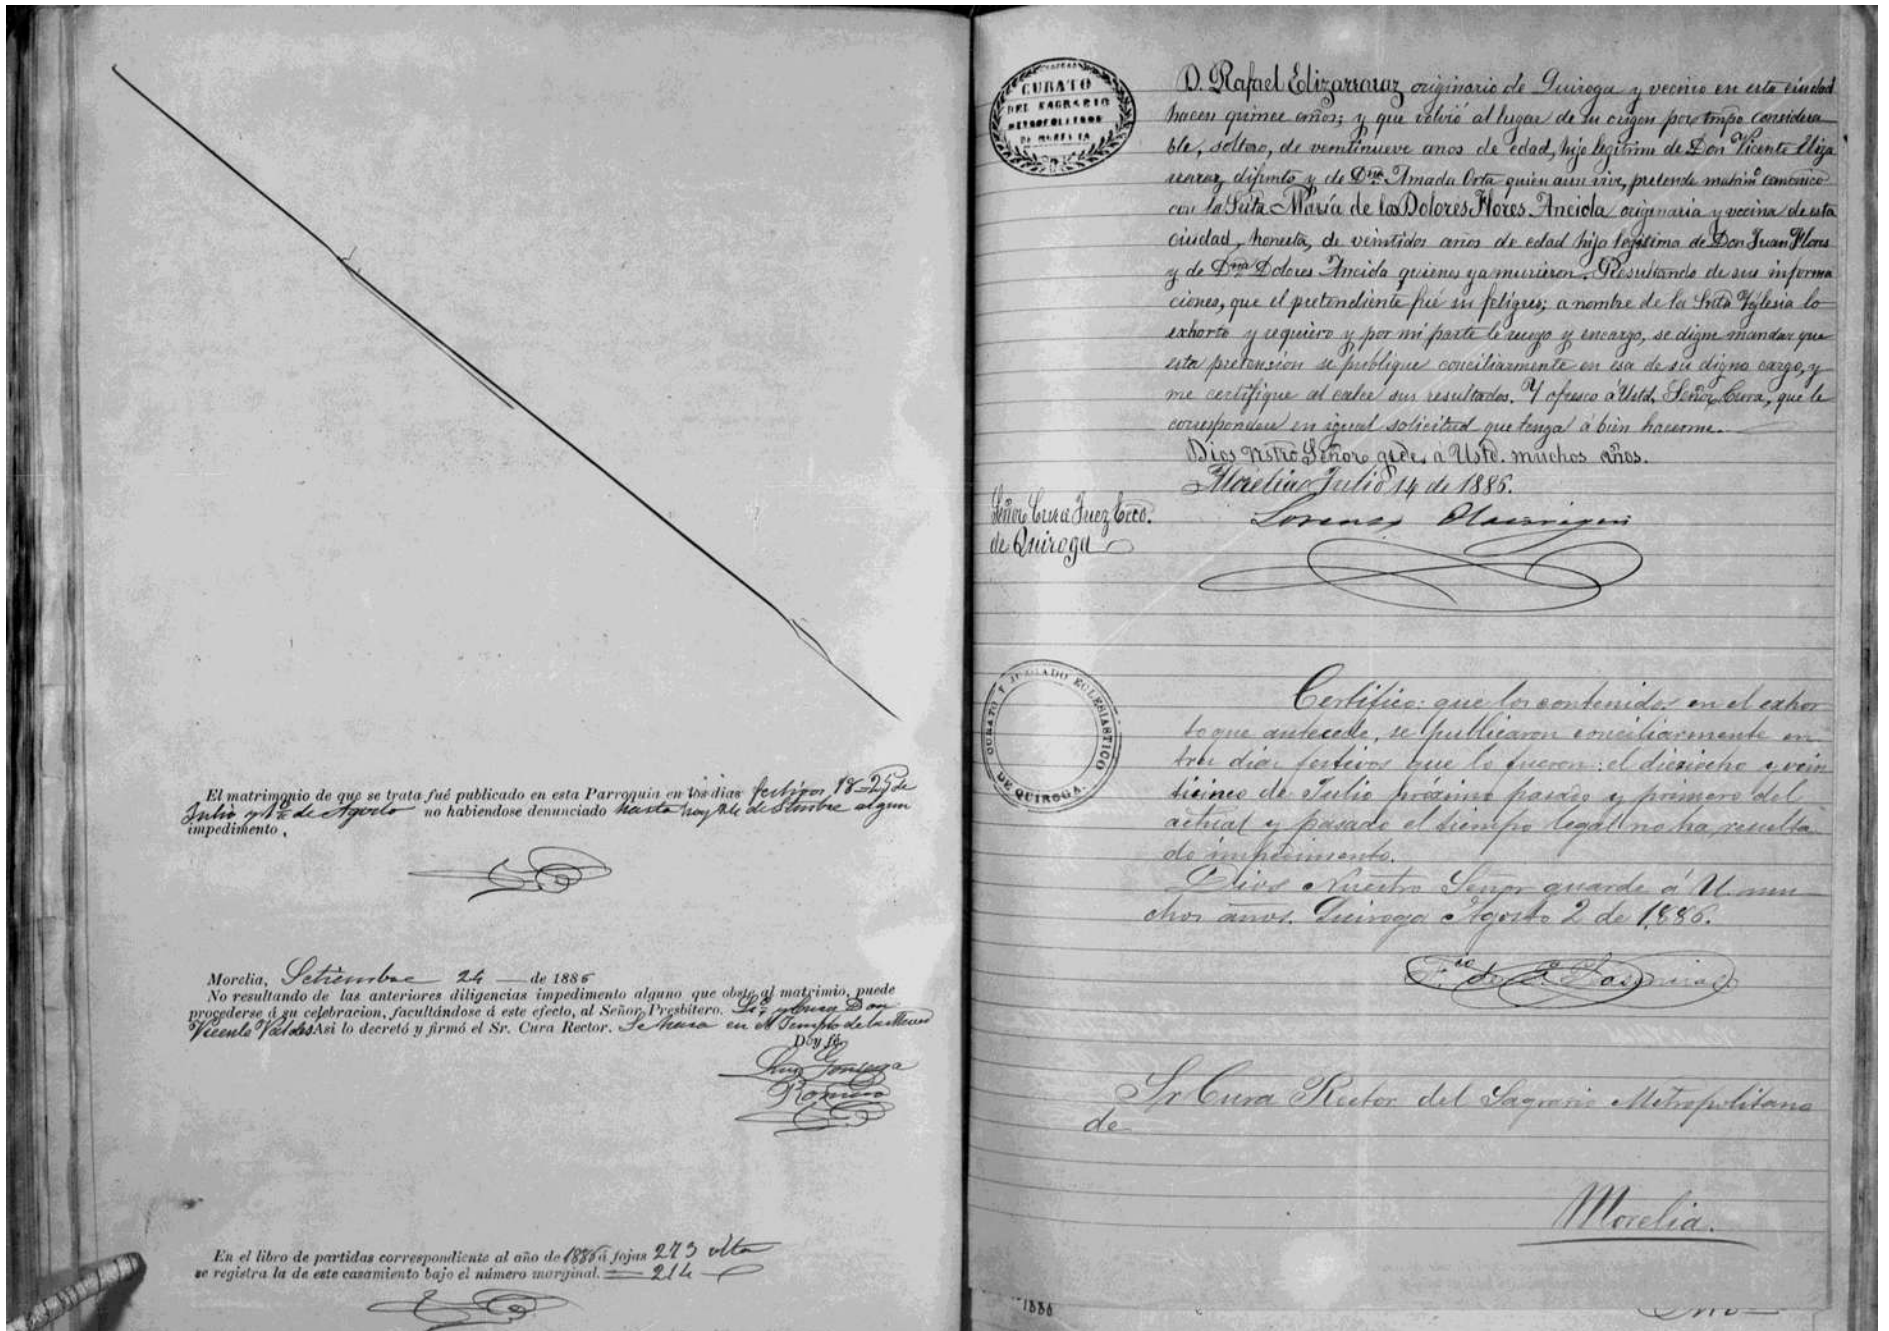 El matrimonio de que se trata fué publicado en esta Parroquia en tres dias festivos 18=25 de
Julio y 1º de Agosto no habiendose denunciado hasta hoy 24 de Stmbre algun
impedimento.
Morelia, Setiembre 24 — de 1886
No resultando de las anteriores diligencias impedimento alguno que obste al matrimio, puede
procederse á su celebracion, facultándose á este efecto, al Señor Presbítero. y Cura Don
Vicente Valdes Asi lo decretó y firmó el Sr. Cura Rector. Se hara en el Templo de la Merced
Doy fé.
Luis Gonzaga
Romero
En el libro de partidas correspondiente al año de 1886 á fojas 273 vlta
se registra la de este casamiento bajo el número marginal. = 214
CURATO
DEL SAGRARIO
METROPOLITANO
DE MORELIA
D. Rafael Elizarraraz originario de Quiroga y vecino en esta ciudad
hacen quince años; y que volvió al lugar de su origen por tmpo considera
ble, soltero, de veintinueve anos de edad, hijo legitimo de Don Vicente Eliza
rraraz difunto y de Dña. Amada Orta quien aun vive, pretende matrimº canonico
con la Srita María de los Dolores Flores Anciola originaria y vecina de esta
ciudad, honesta, de veintidos años de edad hija legitima de Don Juan Flores
y de Dña Dolores Anciola quienes ya murieron. Resultando de sus informa
ciones, que el pretendiente fué su feligres; a nombre de la Snta Yglesia lo
exhorto y requiero y por mi parte le ruego y encargo, se digne mandar que
esta pretension se publique conciliarmente en esa de su digno cargo, y
me certifique al calce sus resultados. Y ofresco á Ustd. Señor Cura, que le
corresponderé en igual solicitud que tenga á bien hacerme.
Dios nstro Señor gde. á Ustd. muchos años.
Morelia Julio 14 de 1886.
Señor Cura Juez Ecco.
de Quiroga
Lorenzo Olaciregui
CURATO Y JUZGADO ECLESIASTICO
DE QUIROGA.
Certifico: que los contenidos en el exhor
to que antecede, se publicaron conciliarmente en
tres dias festivos que lo fueron: el dieziocho y vein
ticinco de Julio próximo pasado y primero del
actual y pasado el tiempo legal no ha resulta
do impedimento.
Dios Nuestro Señor guarde á U. mu
chos años. Quiroga Agosto 2 de 1886.
Sr Cura Rector del Sagrario Metropolitano
de
Morelia.
1886